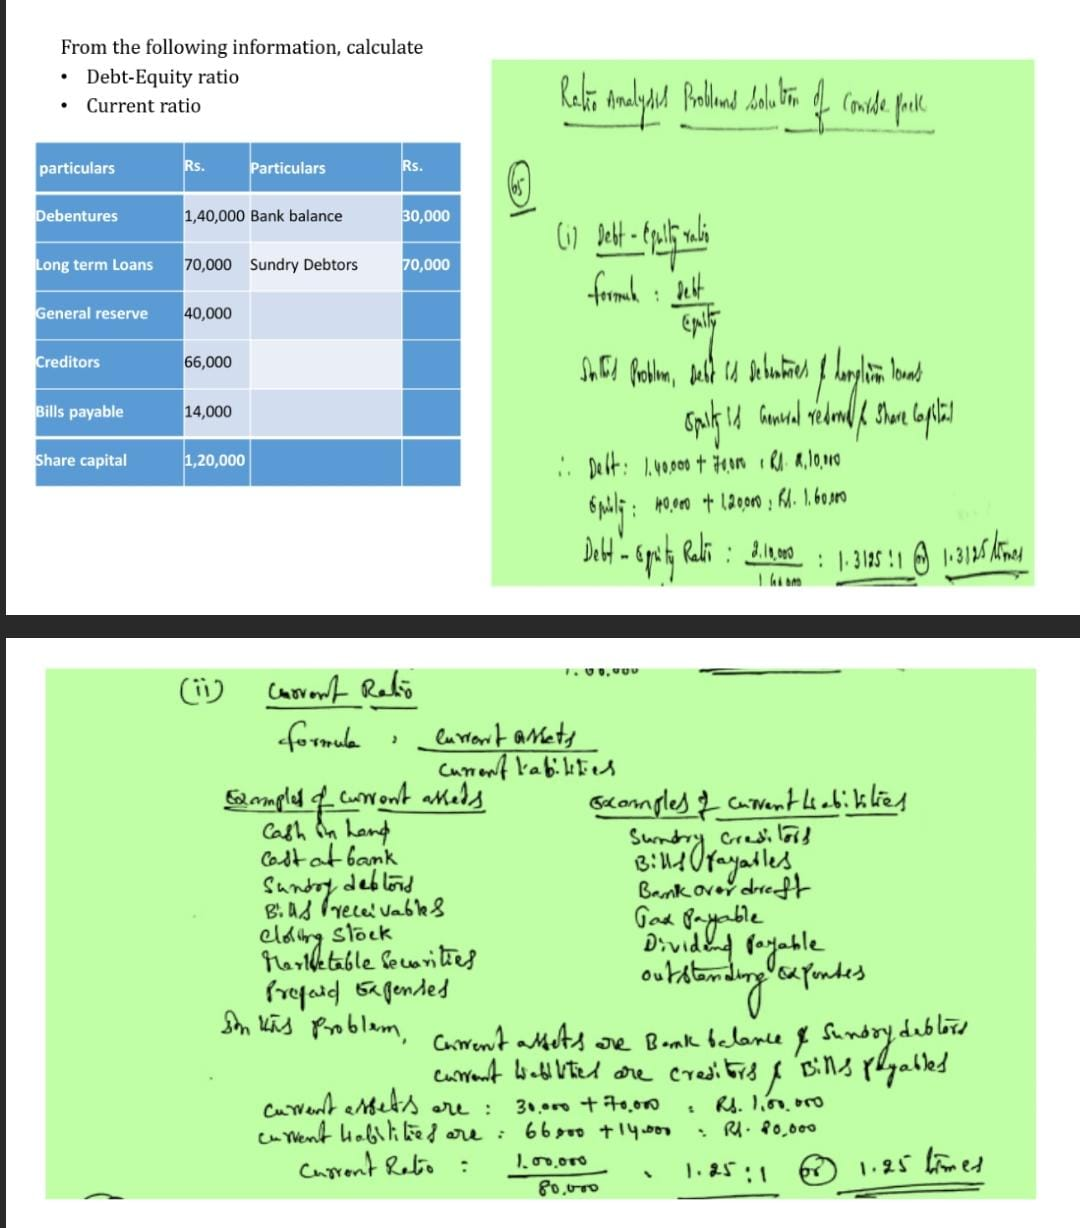 From the following information, calculate
• Debt-Equity ratio
• Current ratio
particulars Rs. Particulars Rs.
Debentures 1,40,000 Bank balance 30,000
Long term Loans 70,000 Sundry Debtors 70,000
General reserve 40,000
Creditors 66,000
Bills payable 14,000
Share capital 1,20,000
Ratio Analysis Problems Solution of Course pack
65
(i) Debt - Equity ratio
formula : Debt
Equity
In this Problem, Debt is Debentures & longterm loans
Equity is General reserve & Share Capital
∴ Debt : 1,40,000 + 70,000 : Rs. 2,10,000
Equity : 40,000 + 1,20,000 : Rs. 1,60,000
Debt - Equity Ratio : 2,10,000 : 1.3125 : 1 or 1.3125 times
1,60,000
1,60,000
(ii) Current Ratio
formula : Current assets
Current liabilities
Examples of current assets
Cash in hand
Cash at bank
Sundry debtors
Bills receivables
closing stock
Marketable Securities
Prepaid Expenses
Examples of current liabilities
Sundry creditors
Bills Payables
Bank over draft
Tax Payable
Dividend Payable
outstanding expenses
In this Problem, Current assets are Bank balance & Sundry debtors
Current liabilities are creditors & Bills payables
Current assets are : 30,000 + 70,000 : Rs. 1,00,000
Current liabilities are : 66000 + 14,000 : Rs. 80,000
Current Ratio : 1,00,000 : 1.25 : 1 or 1.25 times
80,000